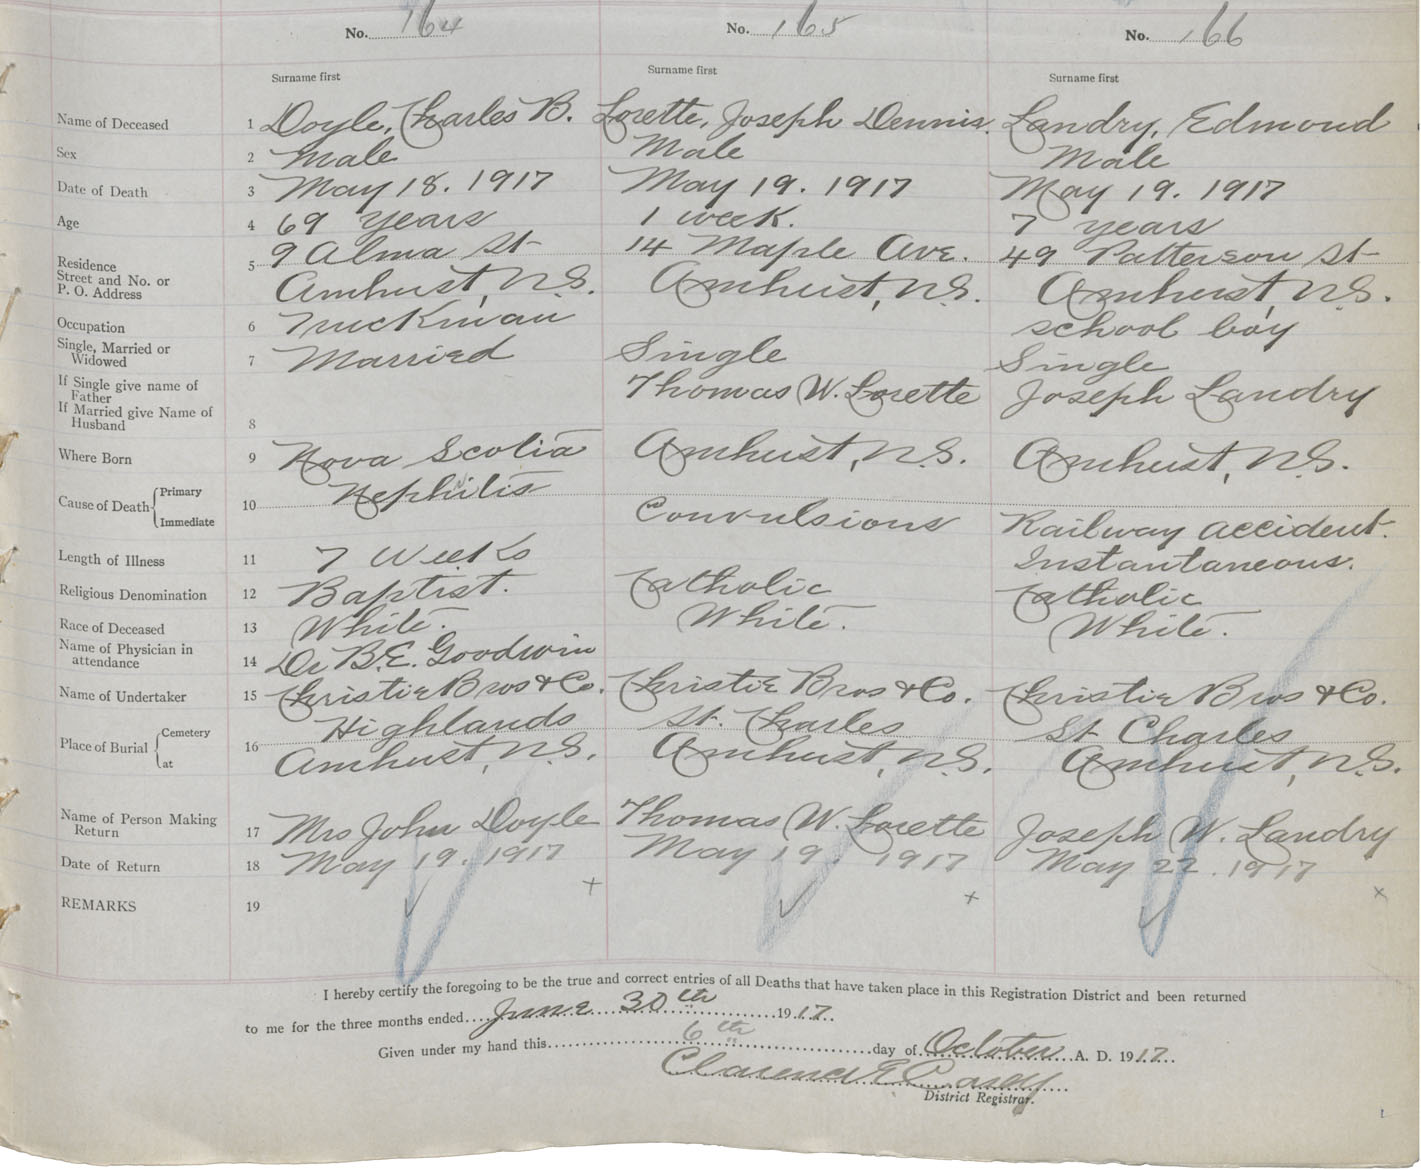 No. 164 No. 165 No. 166
Surname first Surname first Surname first
Name of Deceased 1 Doyle, Charles B. Lorette, Joseph Dennis. Landry, Edmond
Sex 2 Male Male Male
Date of Death 3 May 18. 1917 May 19. 1917 May 19. 1917
Age 4 69 years 1 week. 7 years
Residence 5 9 Alma St 14 Maple Ave. 49 Patterson St
Street and No. or
P. O. Address Amhust, N.S. Amhust, N.S. Amhust, N.S.
Occupation 6 Truckman school boy
Single, Married or
Widowed 7 Married Single Single
If Single give name of
Father Thomas W. Lorette Joseph Landry
If Married give Name of
Husband 8
Where Born 9 Nova Scotia Amhust, N.S. Amhust, N.S.
Cause of Death Primary Nephitis
Immediate 10 Convulsions Railway accident.
Length of Illness 11 7 Weeks Instantaneous.
Religious Denomination 12 Baptist. Catholic Catholic
Race of Deceased 13 White. White. White.
Name of Physician in
attendance 14 Dr B.E. Goodwin
Name of Undertaker 15 Christie Bros & Co. Christie Bros & Co. Christie Bros & Co.
Place of Burial Cemetery Highlands St. Charles St Charles
at 16 Amhust, N.S. Amhust, N.S. Amhust, N.S.
Name of Person Making
Return 17 Mrs John Doyle Thomas W. Lorette Joseph W. Landry
Date of Return 18 May 19. 1917 May 19. 1917 May 22. 1917
REMARKS 19
I hereby certify the foregoing to be the true and correct entries of all Deaths that have taken place in this Registration District and been returned
to me for the three months ended June 30th 1917.
Given under my hand this 6th day of October A. D. 1917
Clarence E Casey
District Registrar.